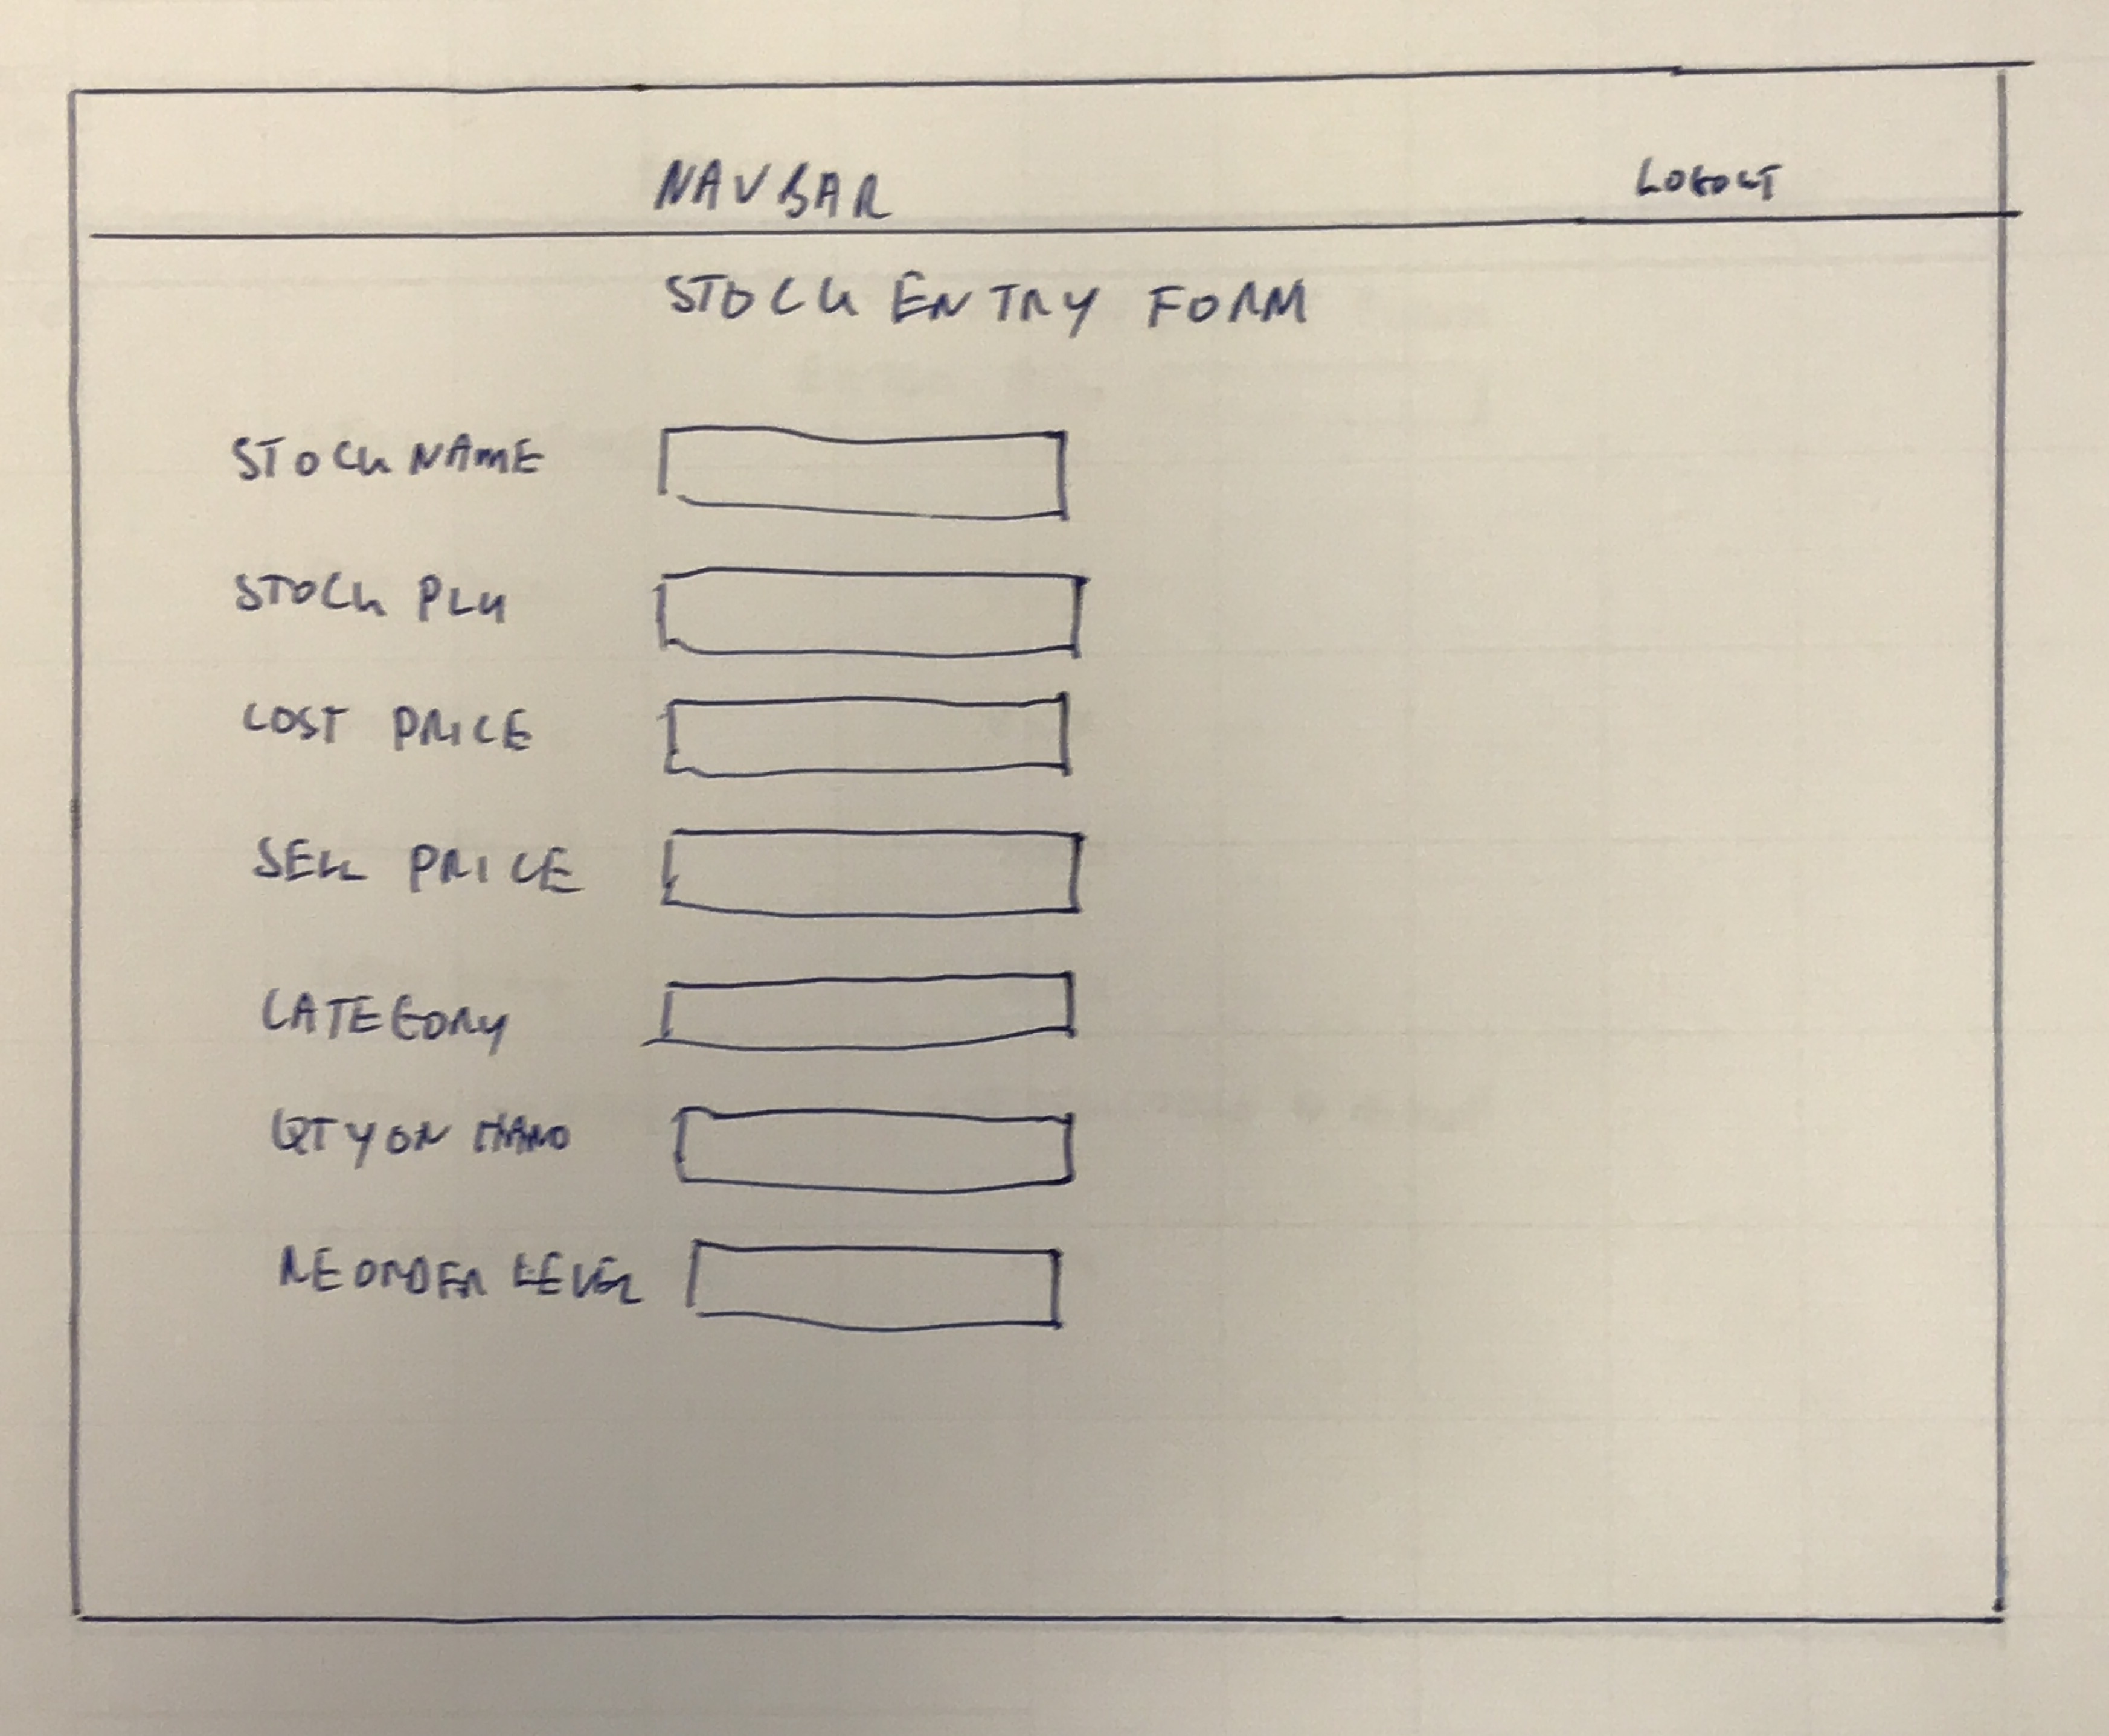 NAVBAR LOGOUT
STOCK ENTRY FORM
STOCK NAME
STOCK PLU
COST PRICE
SELL PRICE
CATEGORY
QTY ON HAND
REORDER LEVEL